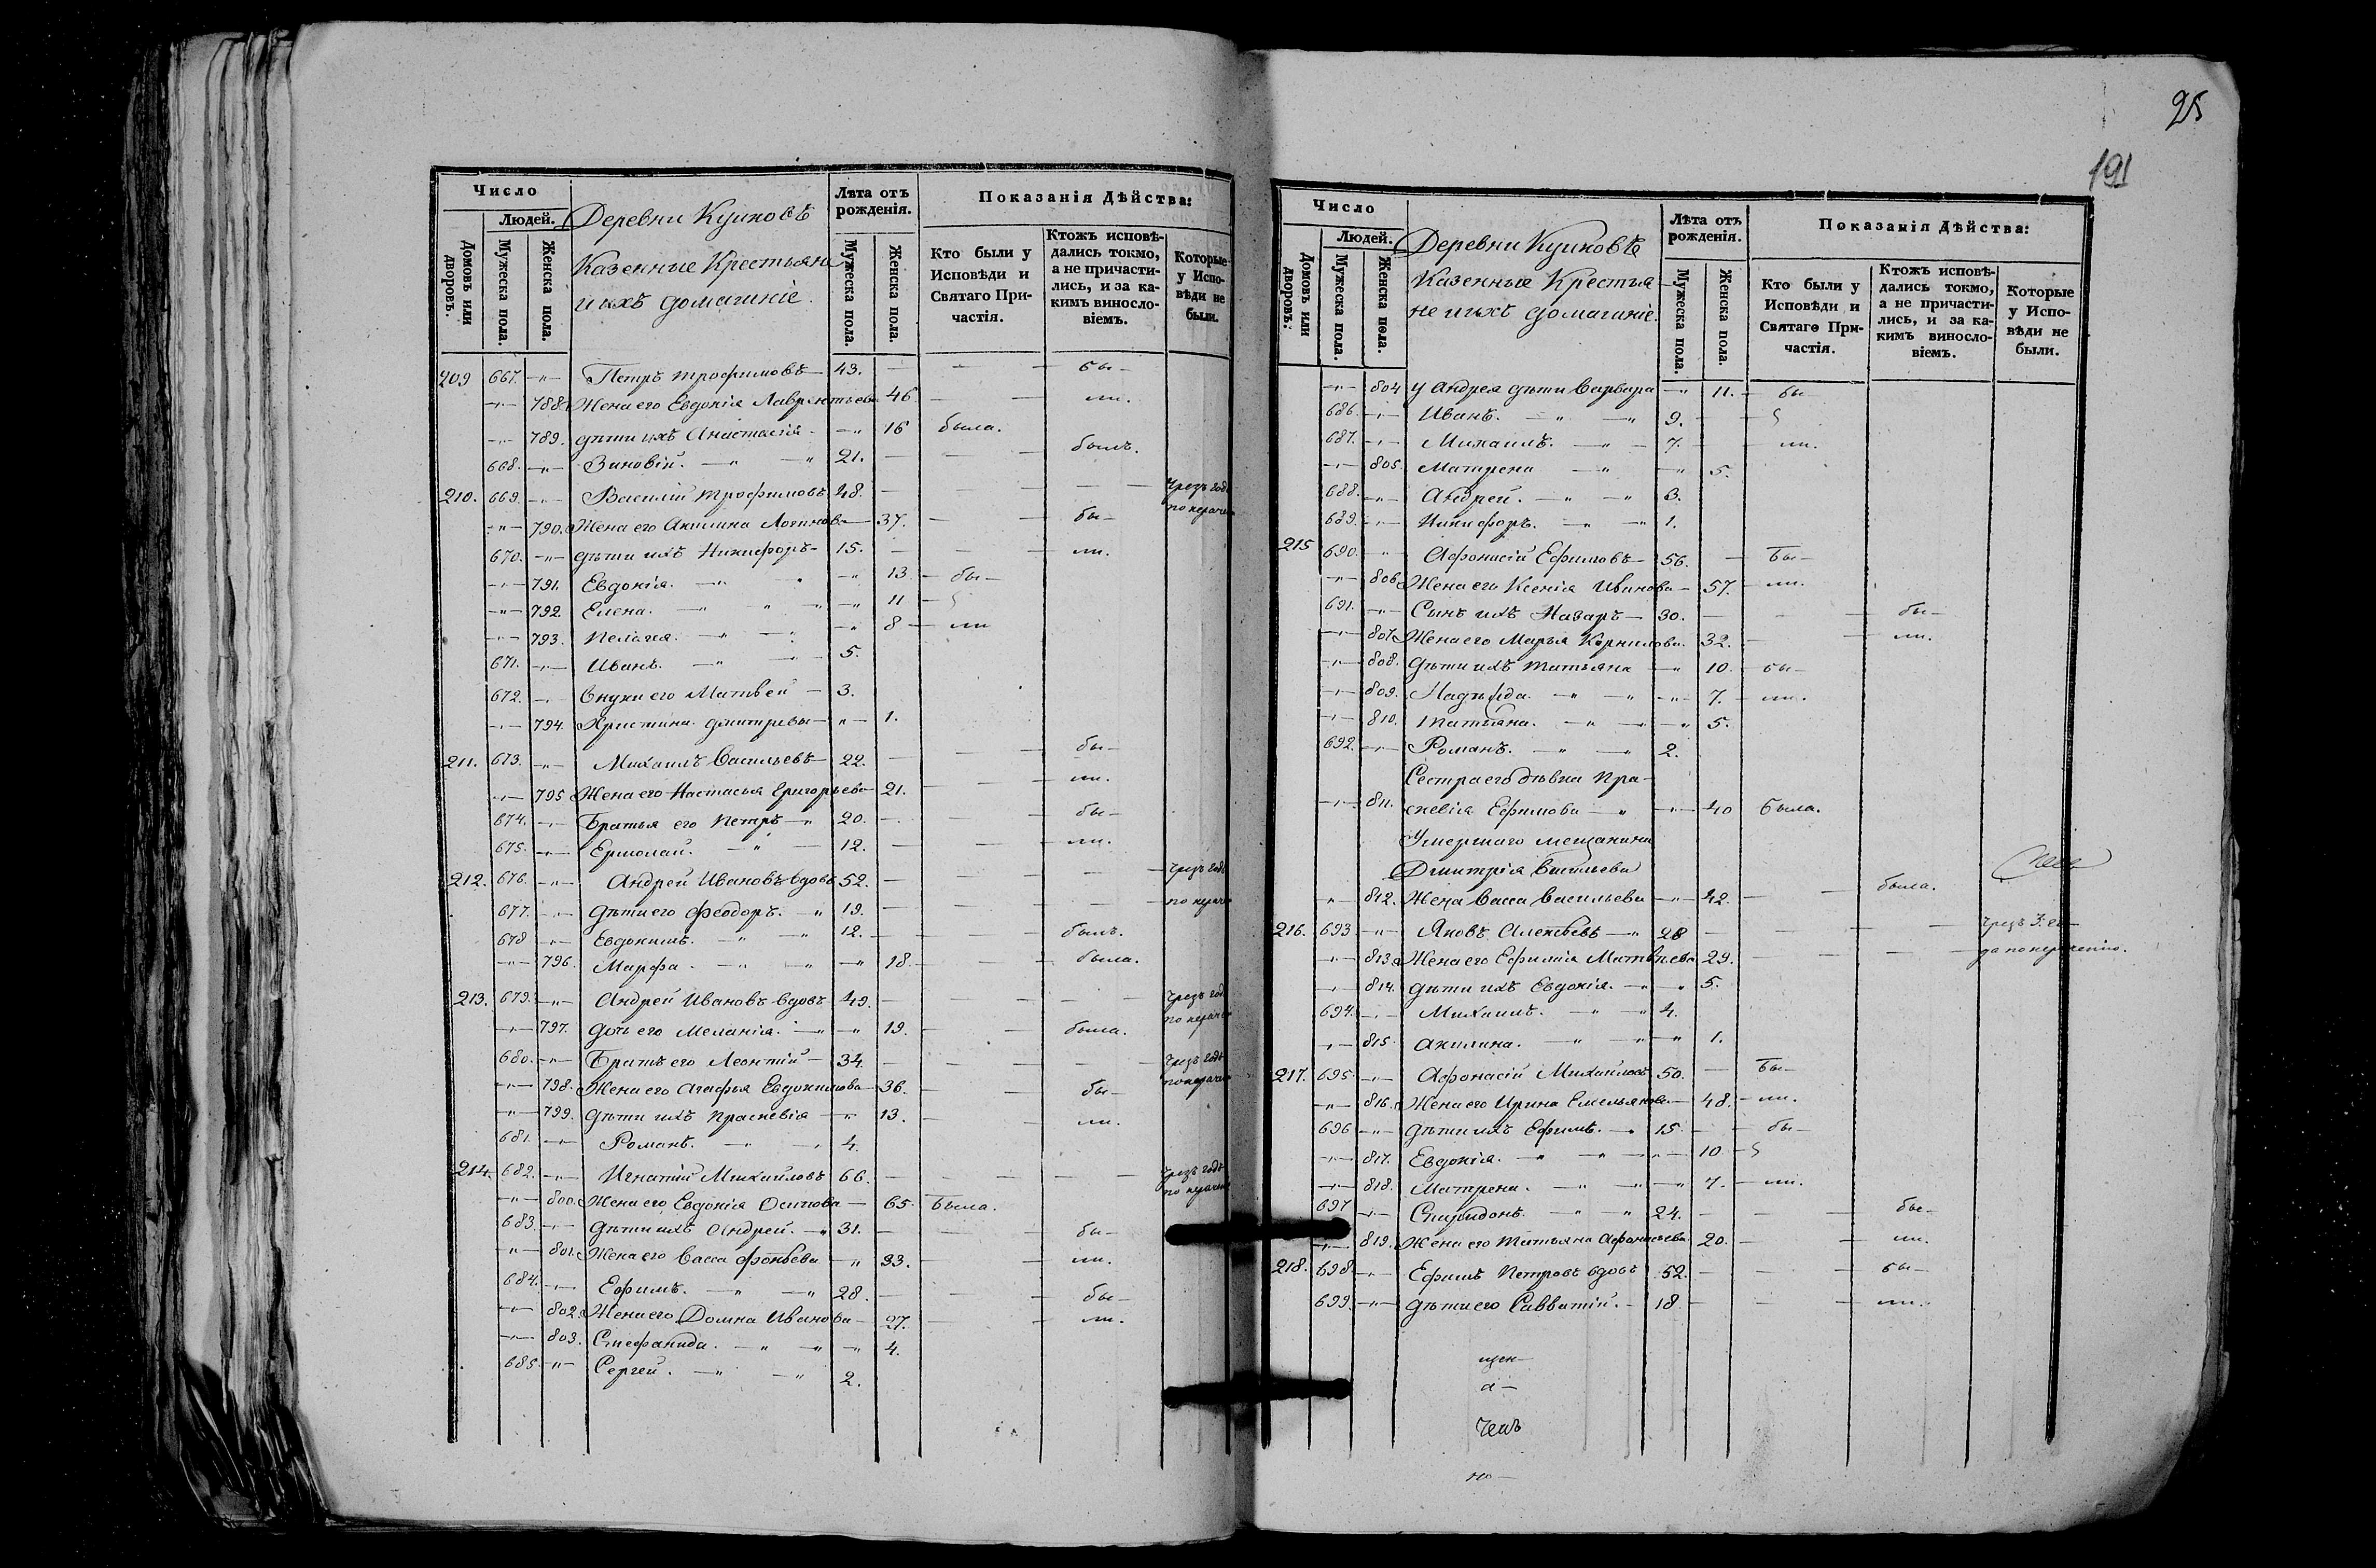 25
191
Число
Людей.
Домовъ или дворовъ.
Мужеска пола.
Женска пола.
Деревни Куиковѣ
Казенные Крестьяне
и ихъ домашніе.
Лѣта отъ рожденія.
Мужеска пола.
Женска пола.
Показанія Дѣйства:
Кто были у Исповѣди и Святаго Причастія.
Ктожъ исповѣдались токмо, а не причастились, и за какимъ винословіемъ.
Которые у Исповѣди не были.
209 667. -"- Петръ Трофимовъ 43. — бы-
-"- 788. Жена его Евдокія Лаврентьева 46. — ли.
-"- 789. дѣти ихъ Анастасія 16 была.
668. -"- Зиновій. 21. — былъ.
210. 669. -"- Василій Трофимовъ 48. — чрезъ годъ
-"- 790. Жена его Акилина Логинова 37. — бы- по нераче
670. -"- дѣти ихъ Никифоръ 15. — ли.
-"- 791. Евдокія. 13 бы-
-"- 792. Елена. 11
-"- 793. Пелагея. 8 ли
671. -"- Иванъ. 5.
672. -"- Внуки его Матвей 3.
-"- 794. Христина Дмитревы 1.
211. 673. -"- Михаилъ Васильевъ 22. — бы-
-"- 795 Жена его Настасья Григорьева 21. — ли.
674. -"- Братья его Петръ 20. — бы-
675. -"- Ермолай. 12. — ли.
212. 676. -"- Андрей Ивановъ вдовъ 52. — чрезъ годъ
677. -"- Дѣти его Феодоръ. 19. — по нераче
678 -"- Евдокимъ. 12. — былъ.
-"- 796. Марфа. 18. — была.
213. 679. -"- Андрей Ивановъ вдовъ 49. — чрезъ годъ по нераче
-"- 797. Дочь его Меланія. 19. — была.
680. -"- Братъ его Леонтій 34. — чрезъ годъ
-"- 798. Жена его Агафья Евдокимова 36. — бы- по нераче
-"- 799. Дѣти ихъ Праскевія 13. — ли.
681. -"- Романъ. 4.
214. 682. -"- Игнатій Михайловъ 66. — чрезъ годъ по нераче
-"- 800. Жена его Евдокія Осипова 65. была.
683. -"- Дѣти ихъ Андрей. 31. — бы-
-"- 801. Жена его Васса Фокѣева 33. — ли.
684. -"- Ефимъ. 28. — бы-
-"- 802. Жена его Домна Иванова 27. — ли.
-"- 803. Стефанида. 4.
685. -"- Сергей. 2.
Число
Людей.
Домовъ или дворовъ:
Мужеска пола.
Женска пола.
Деревни Куиковѣ
Казенные Крестья-
не и ихъ домашніе.
Лѣта отъ рожденія.
Мужеска пола.
Женска пола.
Показанія Дѣйства:
Кто были у Исповѣди и Святаго Причастія.
Ктожъ исповѣдались токмо, а не причастились, и за какимъ винословіемъ.
Которые у Исповѣди не были.
-"- 804 у Андрея дѣти Варвара 11. бы-
686. -"- Иванъ. 9.
687. -"- Михаилъ. 7. ли.
-"- 805. Матрена 5.
688. -"- Андрей. 3.
689. -"- Никифоръ. 1.
215 690. -"- Афонасій Ефимовъ 56. бы-
-"- 806. Жена его Ксенія Иванова 57. ли.
691. -"- Сынъ ихъ Назаръ 30. — бы-
-"- 807. Жена его Марья Корнилова. 32. — ли.
-"- 808. Дѣти ихъ Татьяна 10. бы-
-"- 809. Надѣжда. 7. ли.
-"- 810. Татьяна. 5.
692. -"- Романъ. 2.
Сестра его дѣвка Пра-
-"- 811. скевія Ефимова 40 была.
Умершаго мещанина
Дмитрія Васильева
" 812. Жена Васса Васильева 42. — была.
216. 693 -"- Яковъ Алексѣевъ 28 — чрезъ 3. го-
-"- 813. Жена его Ефимія Матвѣева 29. — да по нераченію.
-"- 814. Дѣти ихъ Евдокія. 5.
694. -"- Михаилъ. 4.
-"- 815. Акилина. 1.
217. 695. -"- Афонасій Михайловъ 50. бы-
-"- 816. Жена его Ирина Емельянова 48. ли.
696 -"- Дѣти ихъ Ефимъ. 15. бы-
-"- 817. Евдокія. 10.
-"- 818. Матрена. 7. ли.
697 -"- Спиридонъ. 24. — бы-
-"- 819. Жена его Татьяна Афонасьева. 20. — ли.
218. 698. -"- Ефимъ Петровъ вдовъ 52. — бы-
699. -"- Дѣти его Савватій. 18. — ли.
щен-
а-
но-